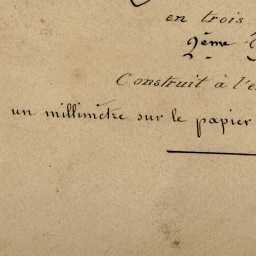 en trois
2ème
Construit à l'é
un millimètre sur le papier